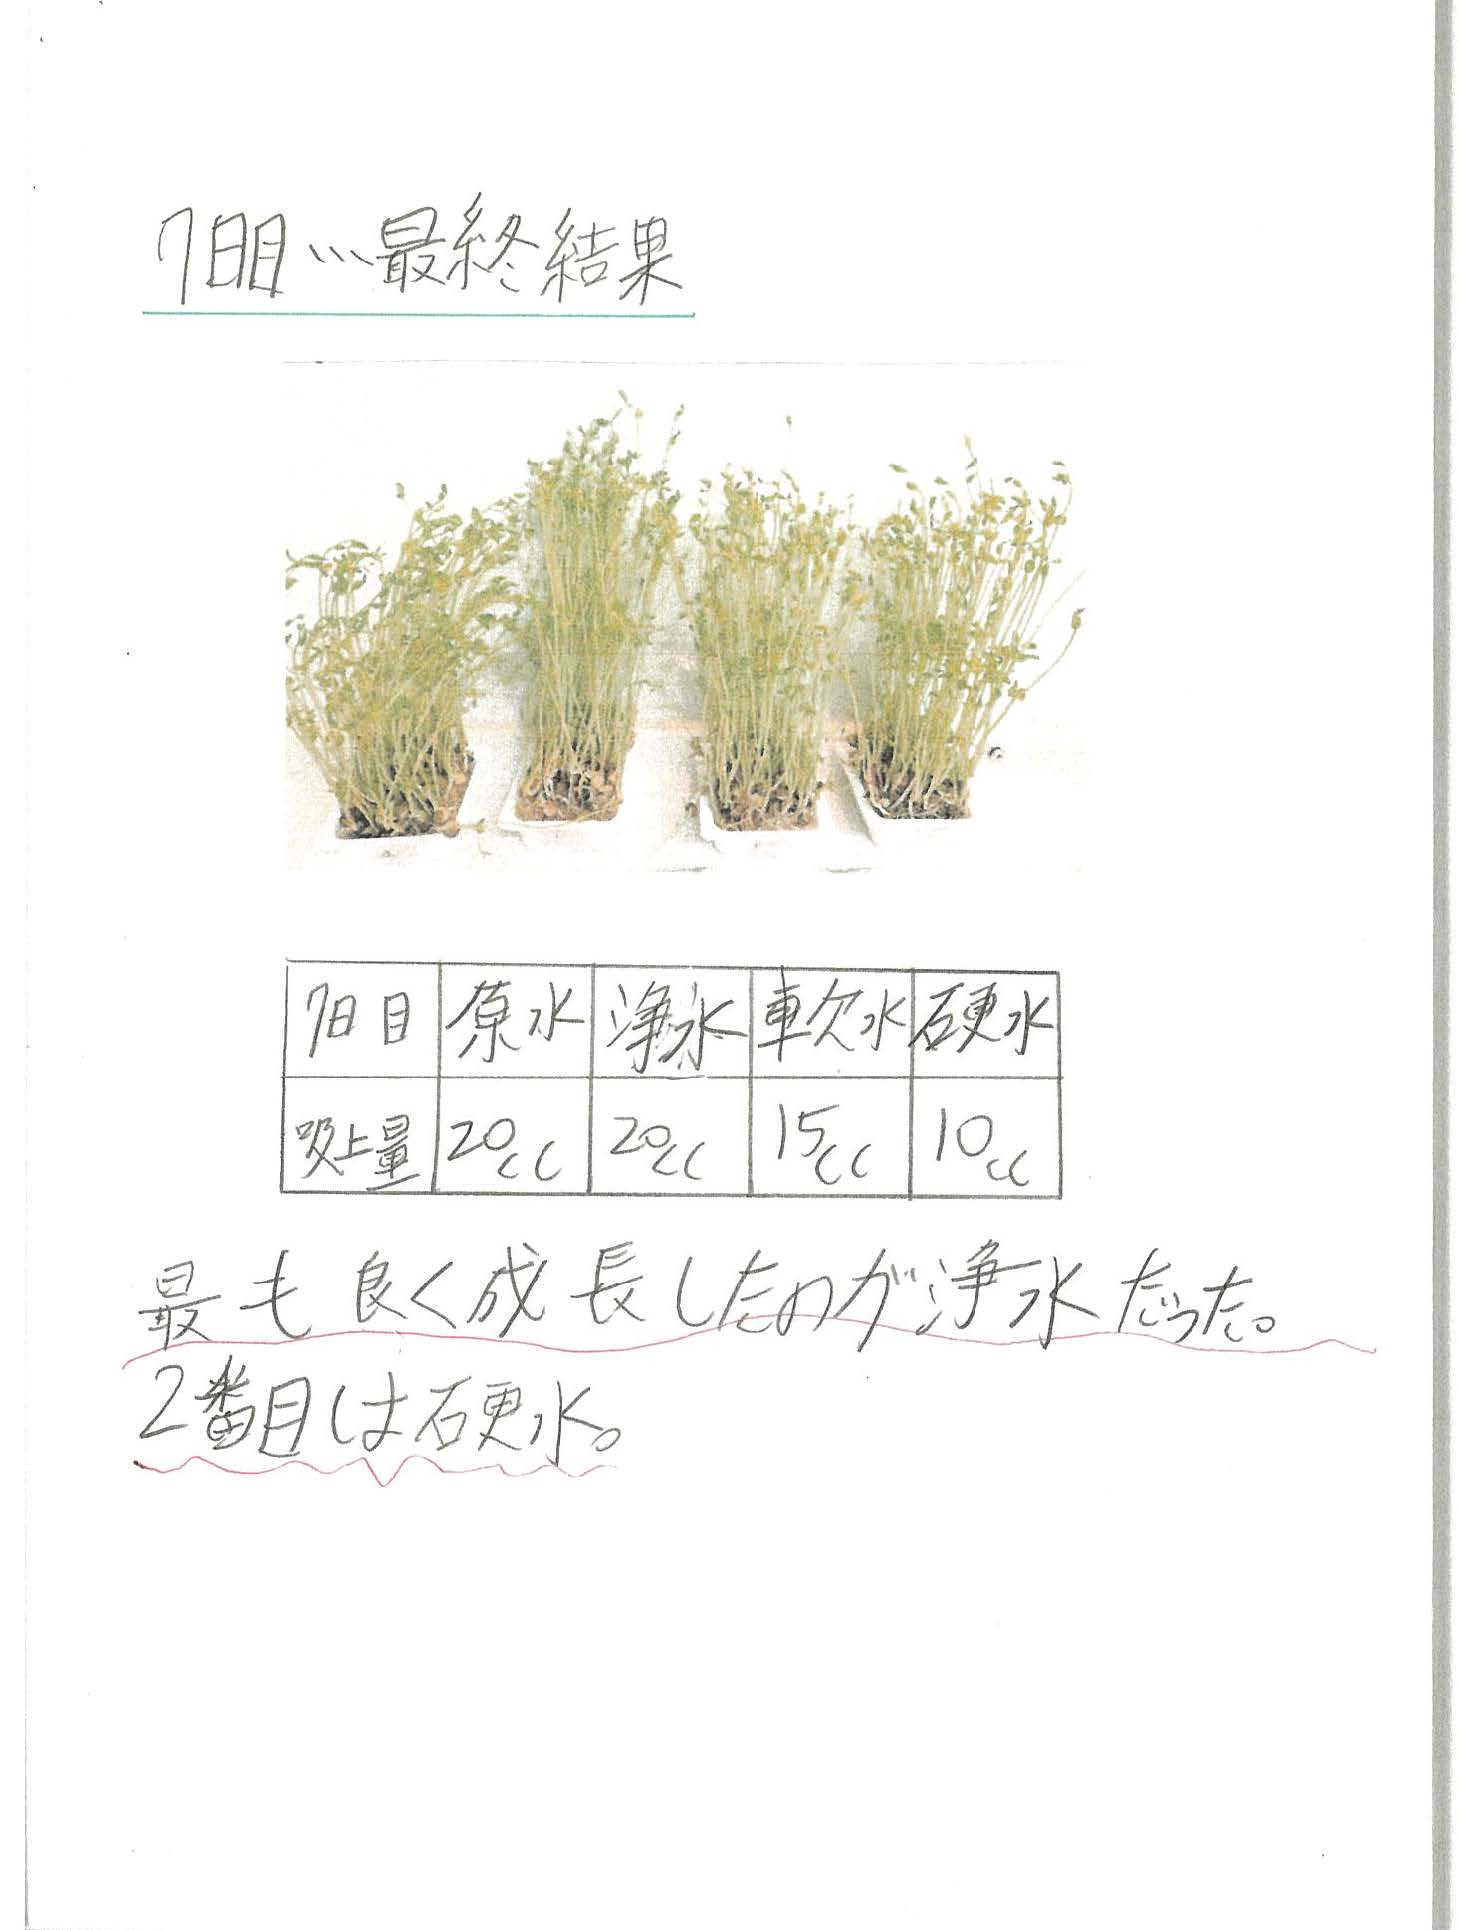 7日目…最終結果
7日目 原水 浄水 軟水 硬水
吸上量 20cc 20cc 15cc 10cc
最も良く成長したのが浄水だった。
2番目は硬水。